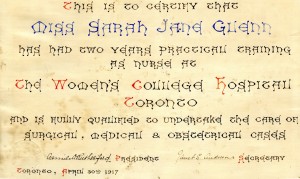 This is to certify that
Miss Sarah Jane Glenn
has had two years practical training
as nurse at
The Women's College Hospital
Toronto
and is fully qualified to undertake the care of
surgical, medical & obstetrical cases
President Secretary
Toronto, April 30th 1917